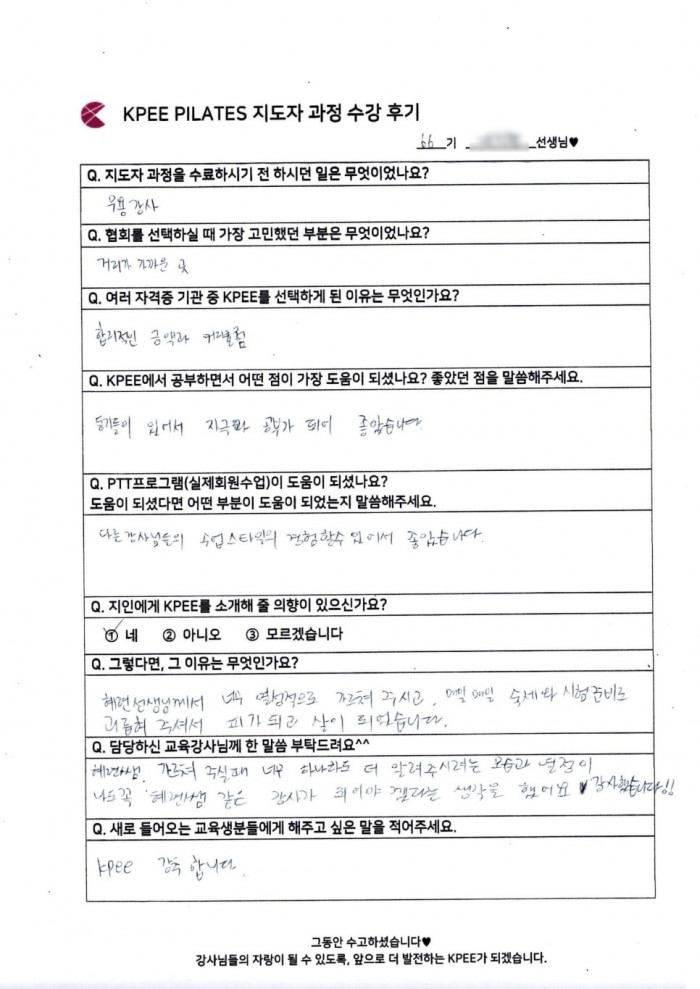 KPEE PILATES 지도자 과정 수강 후기
66 기 선생님♥
Q. 지도자 과정을 수료하시기 전 하시던 일은 무엇이었나요?
무용강사
Q. 협회를 선택하실 때 가장 고민했던 부분은 무엇이었나요?
거리가 가까운 곳
Q. 여러 자격증 기관 중 KPEE를 선택하게 된 이유는 무엇인가요?
합리적인 금액과 커리큘럼
Q. KPEE에서 공부하면서 어떤 점이 가장 도움이 되셨나요? 좋았던 점을 말씀해주세요.
동기들이 있어서 자극과 공부가 되어 좋았습니다.
Q. PTT프로그램(실제회원수업)이 도움이 되셨나요?
도움이 되셨다면 어떤 부분이 도움이 되었는지 말씀해주세요.
다른강사님들의 수업스타일의 경험할수 있어서 좋았습니다.
Q. 지인에게 KPEE를 소개해 줄 의향이 있으신가요?
① 네 ② 아니오 ③ 모르겠습니다
Q. 그렇다면, 그 이유는 무엇인가요?
혜련선생님께서 너무 열성적으로 가르쳐 주시고, 매일매일 숙제와 시험준비로
괴롭혀 주셔서 피가되고 살이 되었습니다.
Q. 담당하신 교육강사님께 한 말씀 부탁드려요^^
혜련쌤, 가르쳐 주실때 너무 하나하도 더 알려주시려는 모습과 열정이
나도꼭 혜련쌤 같은 강사가 되어야 겠다는 생각을 했어요 감사했습니다!!
Q. 새로 들어오는 교육생분들에게 해주고 싶은 말을 적어주세요.
KPEE 강추합니다.
그동안 수고하셨습니다♥
강사님들의 자랑이 될 수 있도록, 앞으로 더 발전하는 KPEE가 되겠습니다.